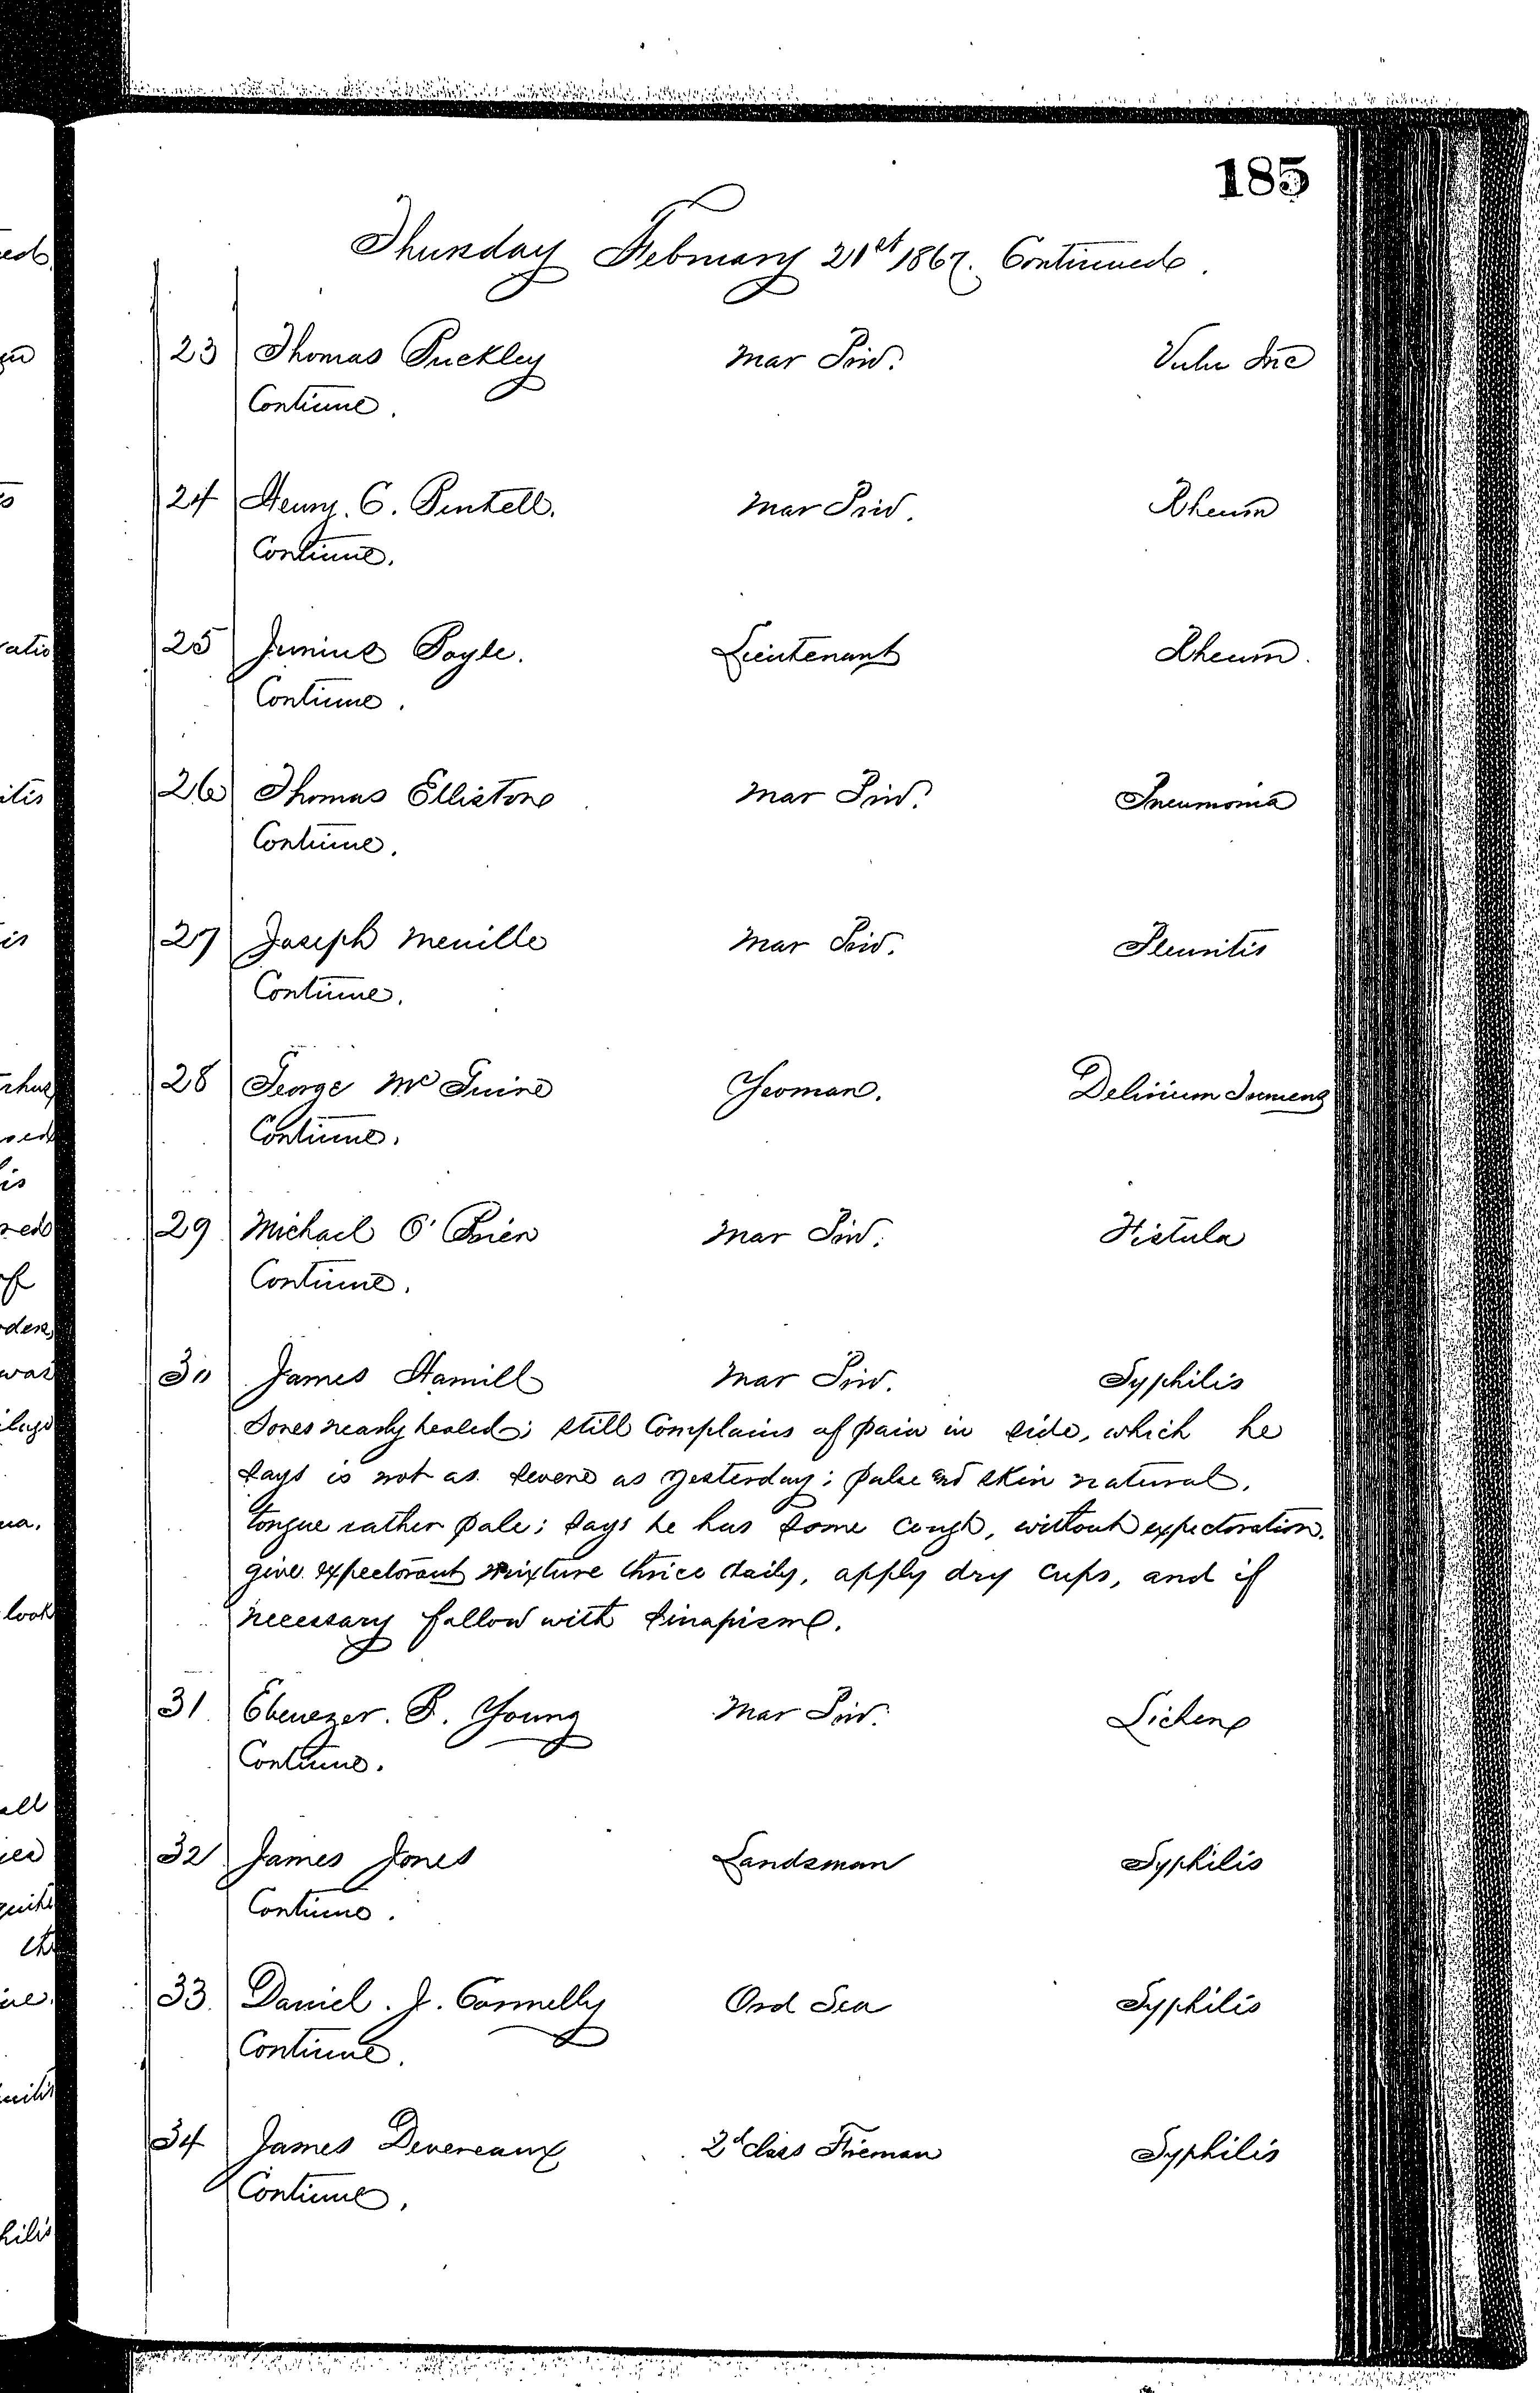 185
Thursday February 21st 1867. Continued.
23 Thomas Buckley Mar Priv. Vuln Inc
Continue.
24 Henry. C. Pentell. Mar Priv. Rheum
Continue.
25 Junius Boyle. Lieutenant Rheum.
Continue.
26 Thomas Ellistone Mar Priv. Pneumonia
Continue.
27 Joseph Meville Mar Priv. Pleuritis
Continue.
28 George McGuire Yeoman. Delirium Tremens
Continue.
29 Michael O'Brien Mar Priv. Fistula
Continue.
30 James Hamill Mar Priv. Syphilis
Sores nearly healed; still Complains of pain in side, which he
says is not as severe as yesterday; pulse and skin natural,
tongue rather pale; says he has some cough, without expectoration.
give expectorant mixture thrice daily, apply dry cups, and if
necessary follow with sinapisms.
31 Ebenezer. B. Young Mar Priv. Lichen
Continue.
32 James Jones Landsman Syphilis
Continue.
33. Daniel. J. Connelly Ord Sea Syphilis
Continue.
34 James Devereaux 2d Class Fireman Syphilis
Continue.